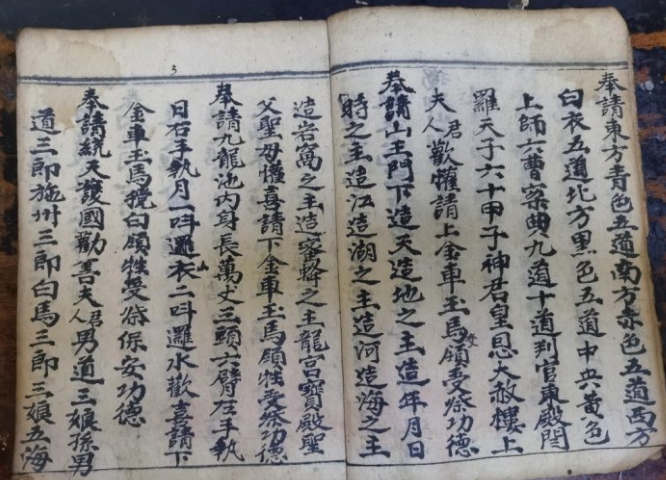 奉請東方青色五道南方赤色五道西方
白衣五道北方黑色五道中央黃色
上師六曹案典九道十道判官東殿閆
羅天子六十甲子神君皇恩大赦樓上
夫人君歡懽請上金車玉馬領受祭功德
奉請山王門下造天造地之主造年月日
時之主造江造湖之主造河造海之主
造岩窩之主造蜜蜂之主龍宮寶殿聖
父聖母懽喜請下金車玉馬領牲受祭功德
奉請九龍池内身長萬丈三頭六臂左手執
日右手執月一呌邏山衣二呌邏水歡喜請下
金車玉馬挽白領牲受祭保安功德
奉請統天護國勸善夫人君男道三娘孫男
道三郎施州三郎白馬三郎三娘五海